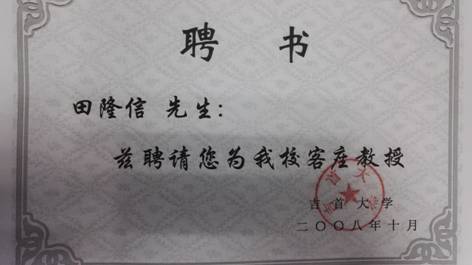 聘书
田隆信 先生:
兹聘请您为我校客座教授
吉首大学
二〇〇八年十月